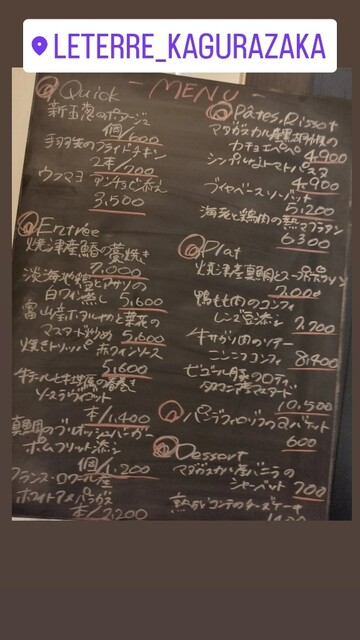 LETERRE_KAGURAZAKA
MENU
Quick
新玉葱のポタージュ
個/600
手羽先のフライドチキン
2本/700
ウフマヨ アンチョビ添え
3,500
Entrée
焼津産鰆の藁焼き
7,000
淡海地鶏とアサリの
白ワイン蒸し 5,600
富山産ホタルイカと菜花の
マスタード炒め 5,600
焼きトリッパ 赤ワインソース
5,600
春巻き
ソースラヴィゴット
本/1,400
真鯛のブリオッシュバーガー
ポムフリット添え
個/1,200
フランス・ロワール産
ホワイトアスパラガス
本/2,200
Pâtes.Rissot
マダガスカル産黒胡椒の
カチョエペペ
4,900
シンプルなトマトパスタ
4,900
ブイヤベースリゾット
5,200
海老と鶏肉の
6300
Plat
焼津産真鯛とスープ・ド・ポワソン
7,000
鴨もも肉のコンフィ
レンズ豆添え
7,700
牛サガリ肉のソテー
ニンニクコンフィ
8,400
ビゴール豚のロティ
タスマニアマスタード
10,500
600
Dessert
マダガスカル産バニラの
シャーベット 700
熟成コンテのチーズケーキ